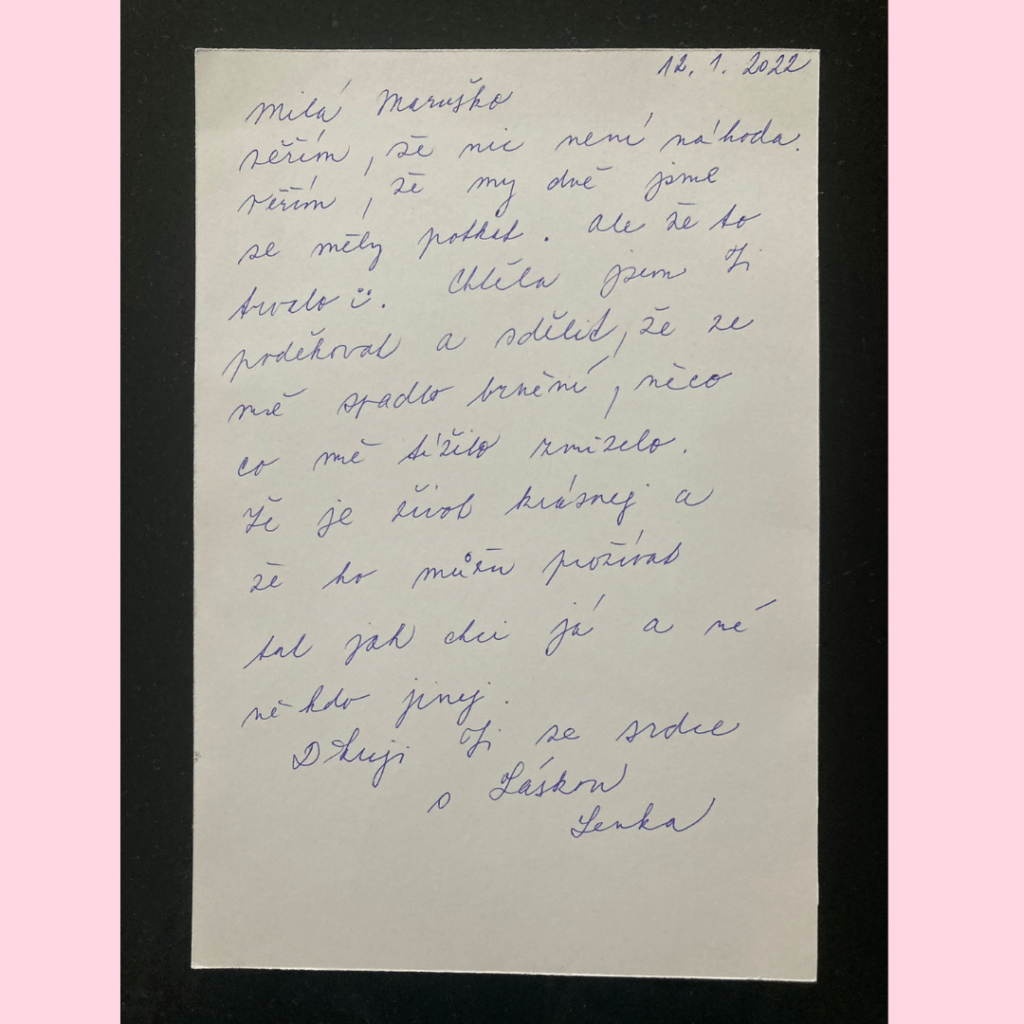 12. 1. 2022
Milá Maruško
věřím, že nic není náhoda.
věřím, že my dvě jsme
se měly potkat. Ale že to
trvalo ü. Chtěla jsem Ti
poděkovat a sdělit, že ze
mě spadlo brnění, něco
co mě tížilo zmizelo.
Že je život krásnej a
že ho můžu prožívat
tak jak chci já a né
někdo jinej.
Děkuji Ti ze srdce
s Láskou
Lenka